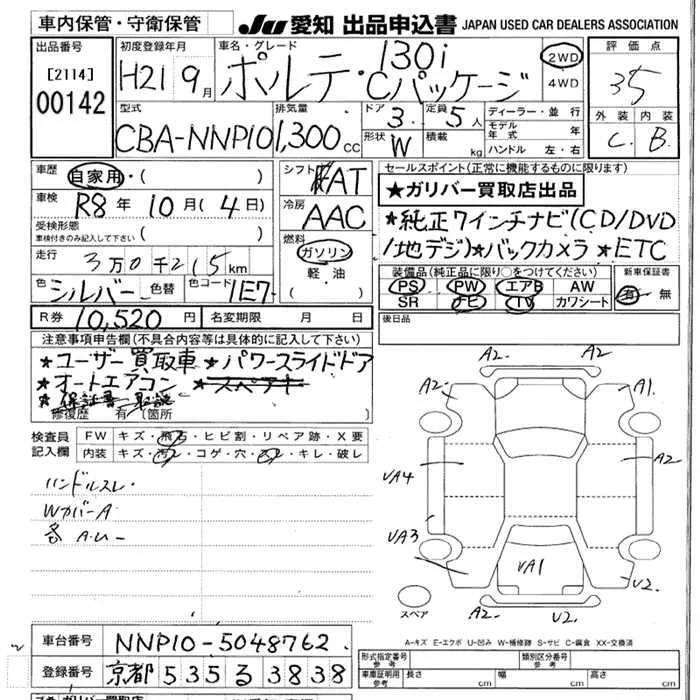 車内保管・守衛保管
JU 愛知 出品申込書 JAPAN USED CAR DEALERS ASSOCIATION
出品番号
[2114]
00142
初度登録年月
H21 9月
車名・グレード
ポルテ・130i
Cパッケージ
2WD
4WD
評価点
3.5
外装 内装
C. B.
型式
CBA-NNP10
排気量
1,300cc
ドア 3.
定員 5人
形状 W
積載 kg
ディーラー・並行
モデル年式 年
ハンドル 左・右
車歴
自家用・( )
車検
R8年 10月(4日)
受検形態
車検付きのみ記入して下さい ( )
走行
3万0千215km
色 シルバー 色替 色コード 1E7
シフト FAT
冷房 AAC
燃料
ガソリン
軽・油
( )
セールスポイント(正常に機能するものに限ります)
★ガリバー買取店出品
★純正7インチナビ(CD/DVD
/地デジ)★バックカメラ★ETC
装備品(純正品に限り○をつけてください)
PS PW エアB AW
SR ナビ TV カワシート
新車保証書
有・無
R券 10,520円 名変期限 月 日
後日品
注意事項申告欄(不具合内容等は具体的に記入して下さい)
★ユーザー買取車★パワースライドドア
★オートエアコン
★保証書 取説
修復歴 有(箇所 )
検査員
記入欄
FW キズ・飛石・ヒビ割・リペア跡・X要
内装 キズ・汚レ・コゲ・穴・スレ・キレ・破レ
ハンドルスレ.
WカバーA
各A.U
A2. A2
A2. A1.
VA4 A2
VA3
VA1
U2.
A2. U2.
スペア
A-キズ E-エクボ U-凹み W-補修跡 S-サビ C-腐食 XX-交換済
車台番号 NNP10-5048762.
登録番号 京都 535 る 3838
形式指定番号 参考
類別区分番号 参考
車庫証明用 参考 長さ cm 幅 cm 高さ cm